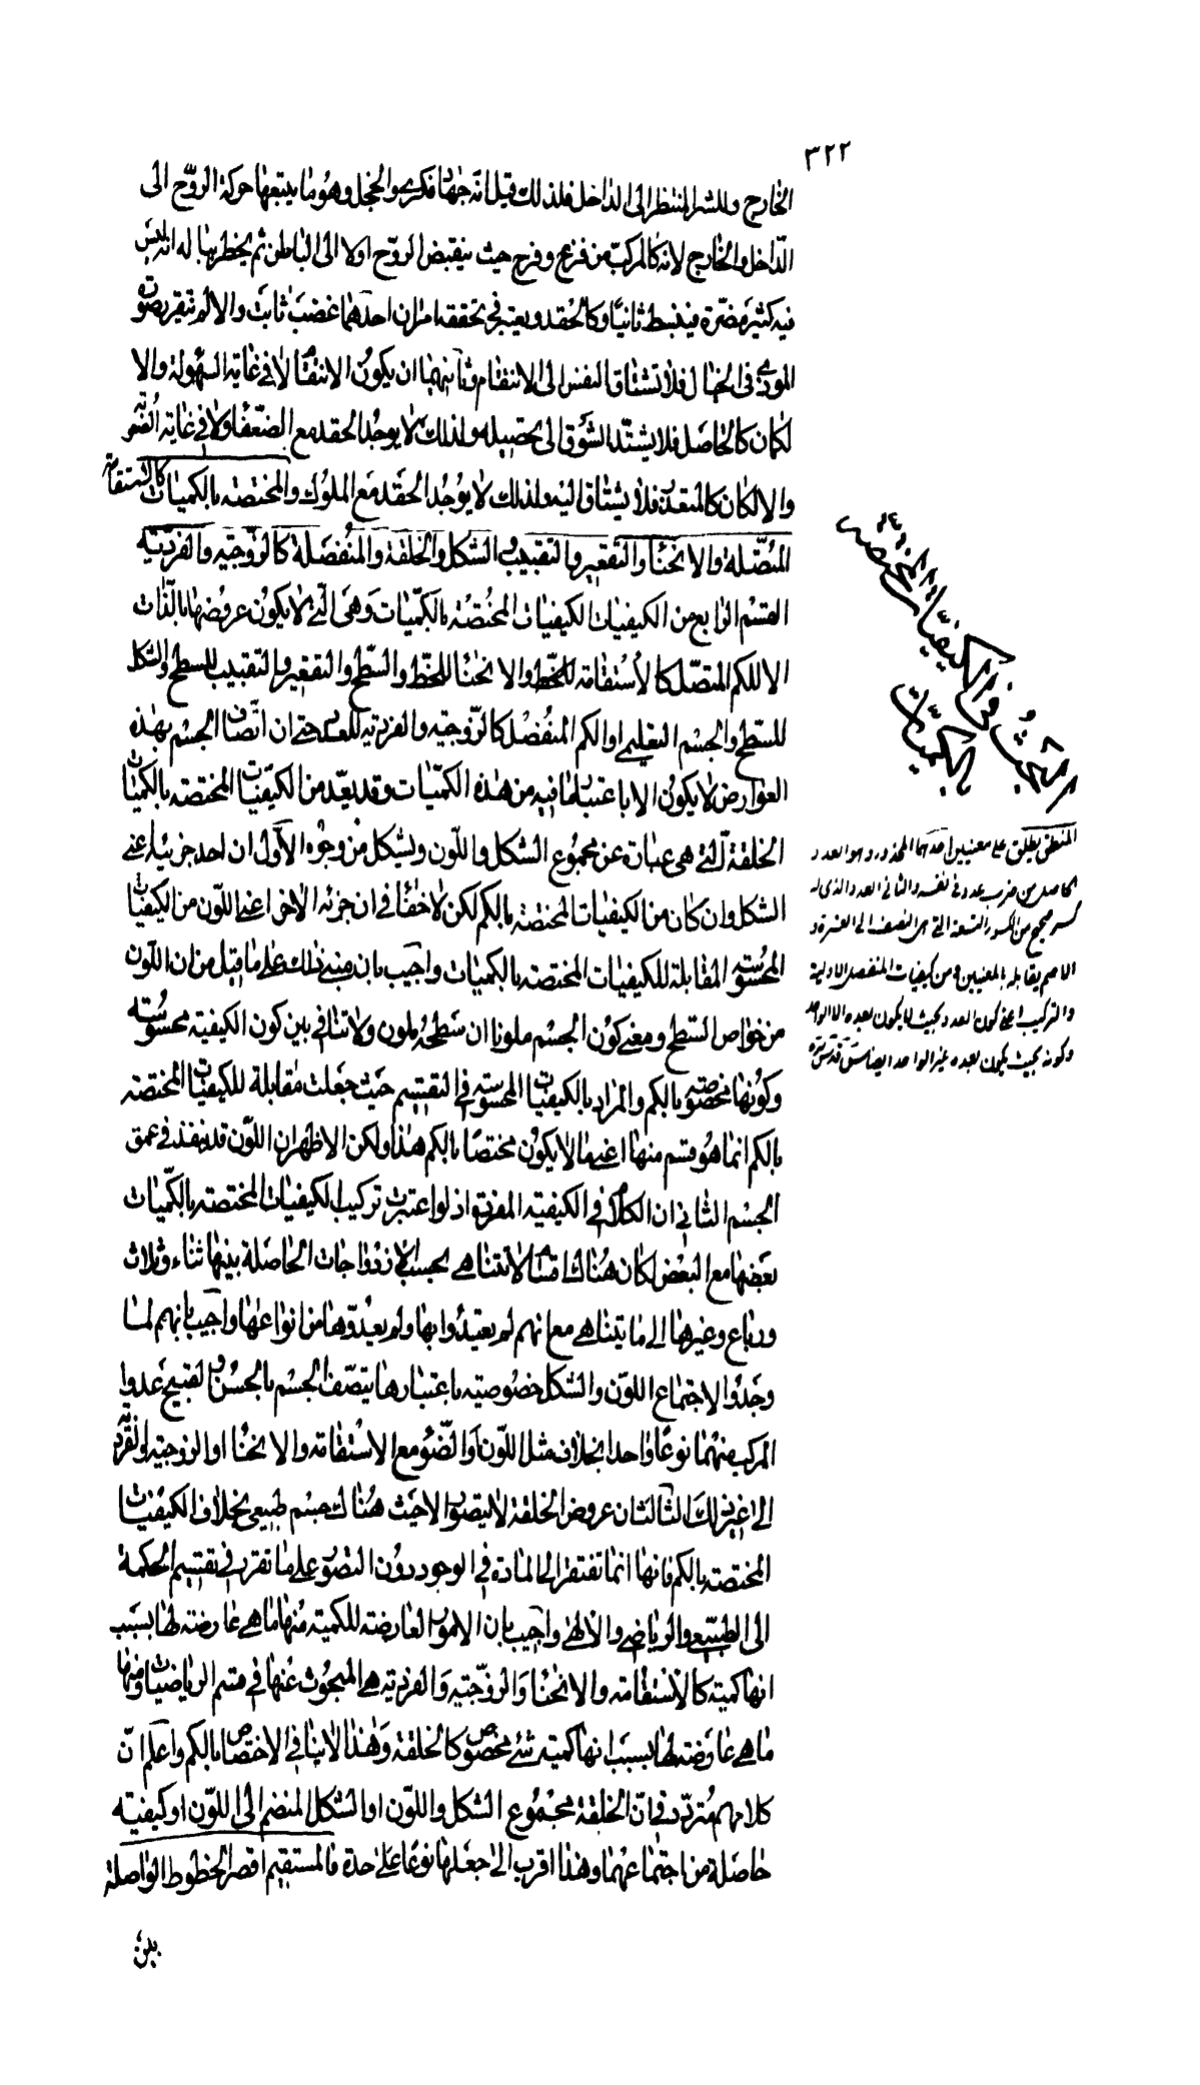 ٣٢٢
الخارج وللشر المنتظر الى الداخل فلذلك قيل انه جهاد فكرى والخجل وهو ما يتبعها حركة الروح الى
الداخل والخارج لانه كالمركب من فزع وفرح حيث ينقبض الروح اولا الى الباطن ثم يخطر بباله انه ليس
فيه كثير مضرة فينبسط ثانيا وكالحقد ويعتبر فى تحققه امران احدهما غضب ثابت والا لم تتقرر صورة
الموذى فى الخيال فلا تشتاق النفس الى الانتقام وثانيهما ان يكون الانتقام لا فى غاية السهولة والا
لكان كالحاصل فلا يشتد الشوق الى تحصيله ولذلك لا يوجد الحقد مع الضعفاء ولا فى غاية الصعوبة
والا لكان كالمتعذر فلا يشتاق اليه ولذلك لا يوجد الحقد مع الملوك والمختصة بالكميات كالاستقامة
المتصلة والانحناء والتقعير والتقبيب والشكل والخلقة والمنفصلة كالزوجية والفردية
القسم الرابع من الكيفيات الكيفيات المختصة بالكميات وهى التى لا يكون عروضها بالذات
الا للكم المتصل كالاستقامة للخط والانحناء للخط والسطح والتقعير والتقبيب للسطح والشكل
للسطح والجسم التعليمى او الكم المنفصل كالزوجية والفردية للعدد حتى ان اتصاف الجسم بهذه
العوارض لا يكون الا باعتبار ما فيه من هذه الكميات وقد يعد من الكيفيات المختصة بالكميات
الخلقة التى هى عبارة عن مجموع الشكل واللون ويشكل من وجوه الاول ان احد جزئيه اعنى
الشكل وان كان من الكيفيات المختصة بالكم لكن لا خفاء فى ان جزئه الاخر اعنى اللون من الكيفيات
المحسوسة المقابلة للكيفيات المختصة بالكميات واجيب بان مبنى ذلك على ما قيل من ان اللون
من خواص السطح ومعنى كون الجسم ملونا ان سطحه ملون ولا تنافى بين كون الكيفية محسوسة
وكونها مخصوصة بالكم والمراد بالكيفيات المحسوسة فى التقسيم حيث جعلت مقابلة للكيفيات المختصة
بالكم انما هو قسم منها اعنى ما لا يكون مختصا بالكم هذا ولكن الاظهر ان اللون قد ينفذ فى عمق
الجسم الثانى ان الكلام فى الكيفية المفردة اذ لو اعتبرت تركيب الكيفيات المختصة بالكميات
بعضها مع البعض لكان هناك اقسام لا تتناهى بحسب الازدواجات الحاصلة بينها ثناء وثلاث
ورباع وغيرها الى ما يتناهى مع انهم لم يعتدوا بها ولم يعدوها من انواعها واجيب بانهم لما
وجدوا لاجتماع اللون والشكل خصوصية باعتبارها يتصف الجسم بالحسن والقبح عدوا
المركب منهما نوعا واحدا بخلاف مثل اللون او الضوء مع الاستقامة والانحناء او الزوجية او الفردية
الى غير ذلك الثالث ان عروض الخلقة لا يتصور الا حيث هناك جسم طبيعى بخلاف الكيفيات
المختصة بالكم فانها انما تفتقر الى المادة فى الوجود دون التصور على ما تقرر فى تقسيم الحكمة
الى الطبيعى والرياضى والالهى واجيب بان الامور العارضة للكمية منها ما هى عارضة لها بسبب
انها كمية كالاستقامة والانحناء والزوجية والفردية هى المبحوث عنها فى قسم الرياضيات ومنها
ما هى عارضة لها بسبب انها كمية شئ مخصوص كالخلقة وهذا لا ينافى الاختصاص بالكم واعلم ان
كلامهم متردد فى ان الخلقة مجموع الشكل واللون او الشكل المنضم الى اللون او كيفية
حاصلة من اجتماعهما وهذا اقرب الى جعلها نوعا على حدة فالمستقيم اقصر الخطوط الواصلة
بين
المبحث فى الكيفيات المختصة
بالكميات
المنطق يطلق على معنيين احدهما المجذور وهو العدد
الحاصل من ضرب عدد فى نفسه والثانى العدد الذى له
كسر صحيح من الكسور التسعة التى من النصف الى العشرة و
الاصم يقابله بالمعنيين ومن كيفيات المنفصل الاولية
والتركيب اعنى كون العدد بحيث لا يكون يعده الا الواحد
وكونه بحيث يكون يعده غير الواحد ايضا